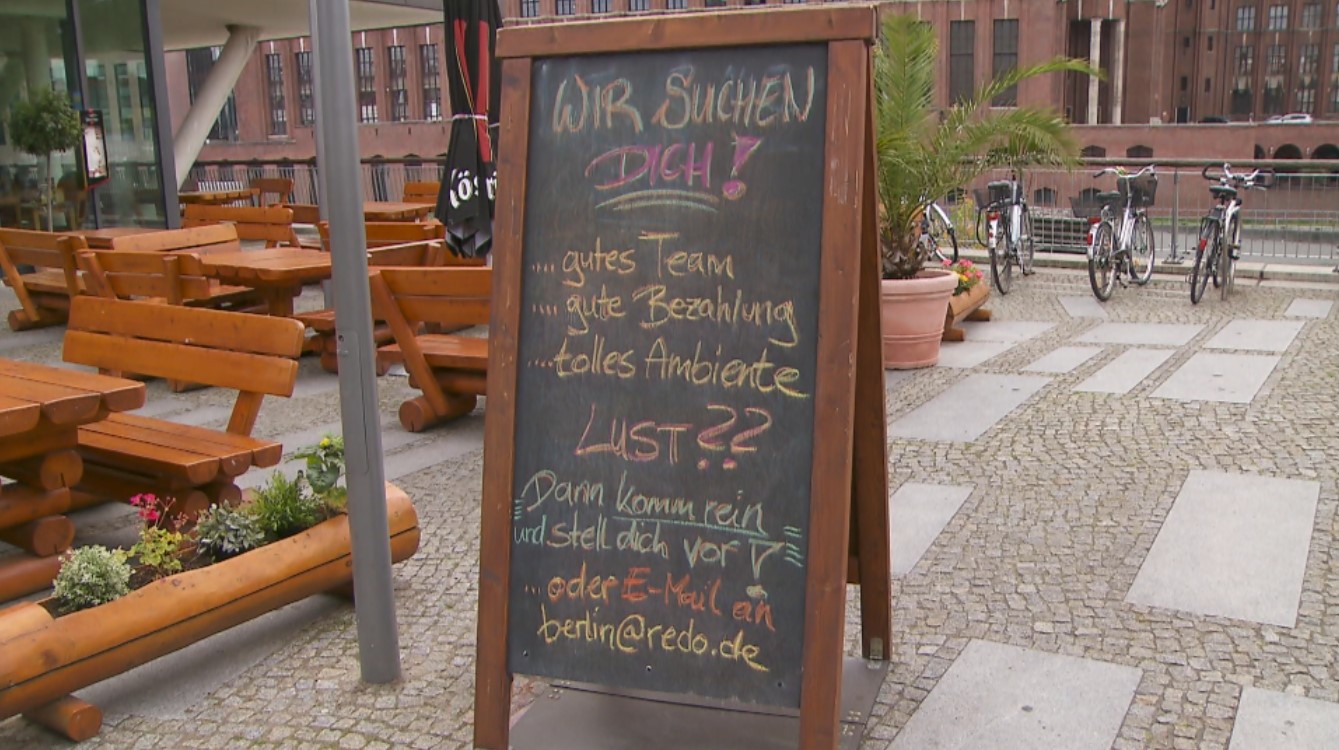 WIR SUCHEN
DICH!
.... gutes Team
.... gute Bezahlung
.... tolles Ambiente
LUST??
Dann komm rein
und stell dich vor!
... oder E-Mail an
berlin@redo.de